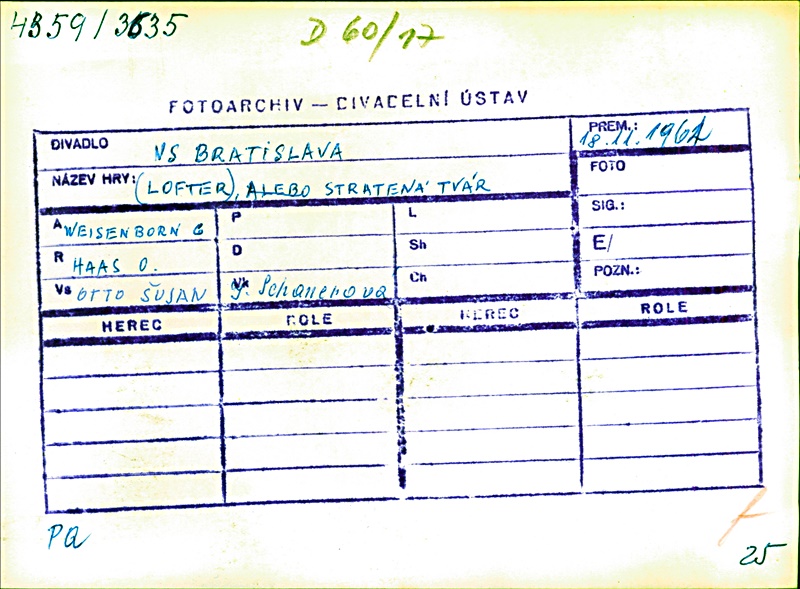 4359/3635
D 60/17
FOTOARCHIV — DIVADELNÍ ÚSTAV
DIVADLO VS BRATISLAVA
PREM.: 18.11.1961
NÁZEV HRY: (LOFTER), ALEBO STRATENÁ TVÁR
FOTO
A WEISENBORN G
P
L
SIG.:
R HAAS O.
D
Sh
E/
Vs OTTO ŠUJAN
Vk
Ch
POZN.:
HEREC ROLE HEREC ROLE
PQ
25